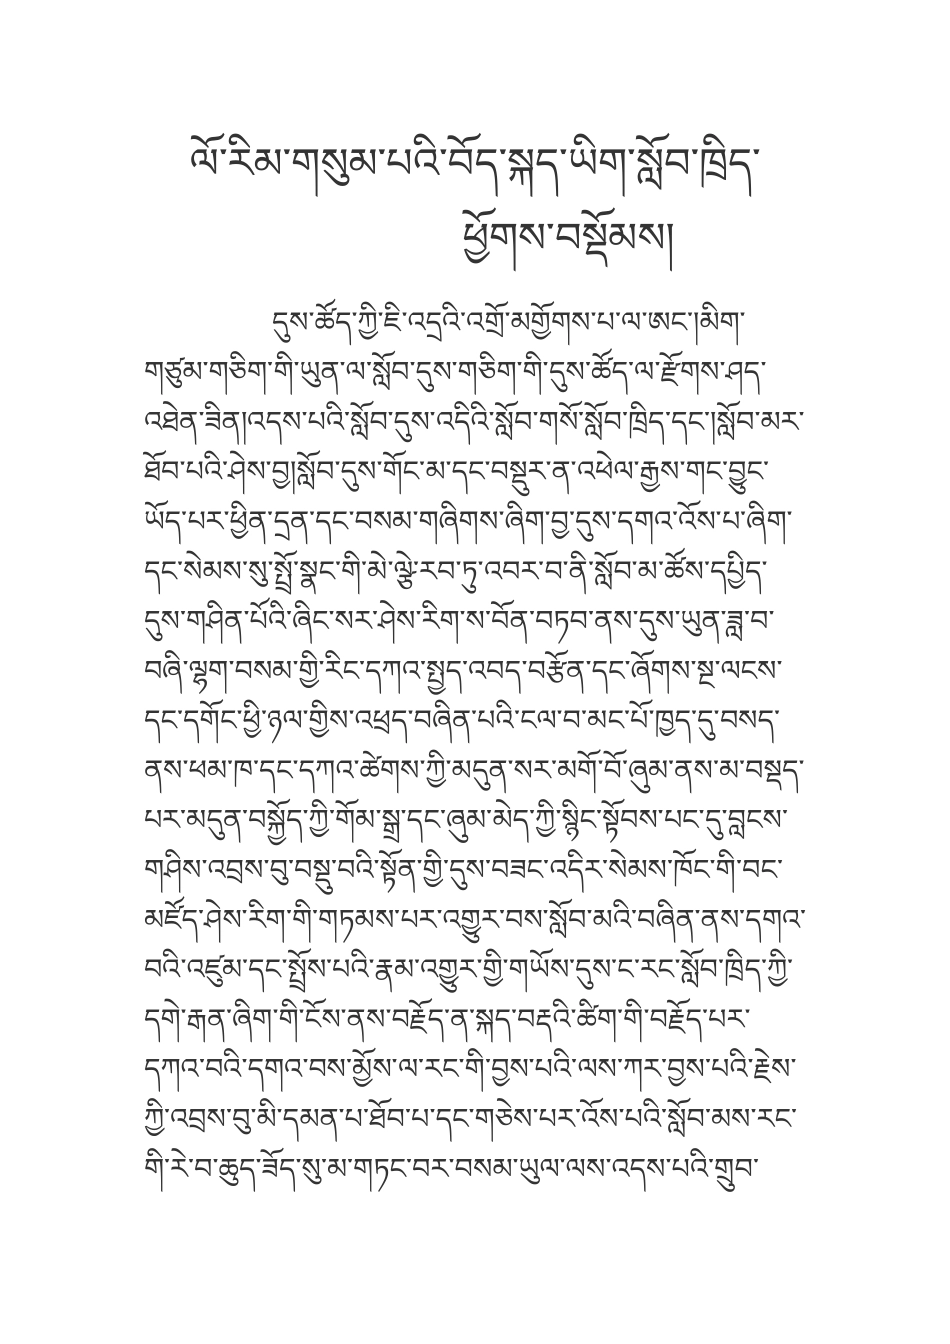 ལོ་རིམ་གསུམ་པའི་བོད་སྐད་ཡིག་སློབ་ཁྲིད་
ཕྱོགས་བསྡོམས།
དུས་ཚོད་ཀྱི་ཇི་འདྲའི་འགྲོ་མགྱོགས་པ་ལ་ཨང་།མིག་
གཙུམ་གཅིག་གི་ཡུན་ལ་སློབ་དུས་གཅིག་གི་དུས་ཚོད་ལ་རྫོགས་ཤད་
འཐེན་ཟིན།འདས་པའི་སློབ་དུས་འདིའི་སློབ་གསོ་སློབ་ཁྲིད་དང་།སློབ་མར་
ཐོབ་པའི་ཤེས་བྱ།སློབ་དུས་གོང་མ་དང་བསྡུར་ན་འཕེལ་རྒྱས་གང་བྱུང་
ཡོད་པར་ཕྱིན་དྲན་དང་བསམ་གཞིགས་ཞིག་བྱ་དུས་དགའ་འོས་པ་ཞིག་
དང་སེམས་སུ་སྤྲོ་སྣང་གི་མེ་ལྕེ་རབ་ཏུ་འབར་བ་ནི་སློབ་མ་ཚོས་དཔྱིད་
དུས་གཤིན་པོའི་ཞིང་སར་ཤེས་རིག་ས་བོན་བཏབ་ནས་དུས་ཡུན་ཟླ་བ་
བཞི་ལྷག་བསམ་གྱི་རིང་དཀའ་སྤྱད་འབད་བརྩོན་དང་ཞོགས་སྔ་ལངས་
དང་དགོང་ཕྱི་ཉལ་གྱིས་འཕྲད་བཞིན་པའི་ངལ་བ་མང་པོ་ཁྱད་དུ་བསད་
ནས་ཕམ་ཁ་དང་དཀའ་ཚེགས་ཀྱི་མདུན་སར་མགོ་བོ་ཞུམ་ནས་མ་བསྡད་
པར་མདུན་བསྐྱོད་ཀྱི་གོམ་སྒྲ་དང་ཞུམ་མེད་ཀྱི་སྙིང་སྟོབས་པང་དུ་བླངས་
གཤིས་འབྲས་བུ་བསྡུ་བའི་སྟོན་གྱི་དུས་བཟང་འདིར་སེམས་ཁོང་གི་བང་
མཛོད་ཤེས་རིག་གི་གཏམས་པར་འགྱུར་བས་སློབ་མའི་བཞིན་ནས་དགའ་
བའི་འཛུམ་དང་སྤྲོས་པའི་རྣམ་འགྱུར་གྱི་གཡོས་དུས་ང་རང་སློབ་ཁྲིད་ཀྱི་
དགེ་རྒན་ཞིག་གི་ངོས་ནས་བརྗོད་ན་སྐད་བརྡའི་ཚིག་གི་བརྗོད་པར་
དཀའ་བའི་དགའ་བས་མྱོས་ལ་རང་གི་བྱས་པའི་ལས་ཀར་བྱས་པའི་རྗེས་
ཀྱི་འབྲས་བུ་མི་དམན་པ་ཐོབ་པ་དང་གཅེས་པར་འོས་པའི་སློབ་མས་རང་
གི་རེ་བ་ཆུད་ཟོད་སུ་མ་གཏང་བར་བསམ་ཡུལ་ལས་འདས་པའི་གྲུབ་